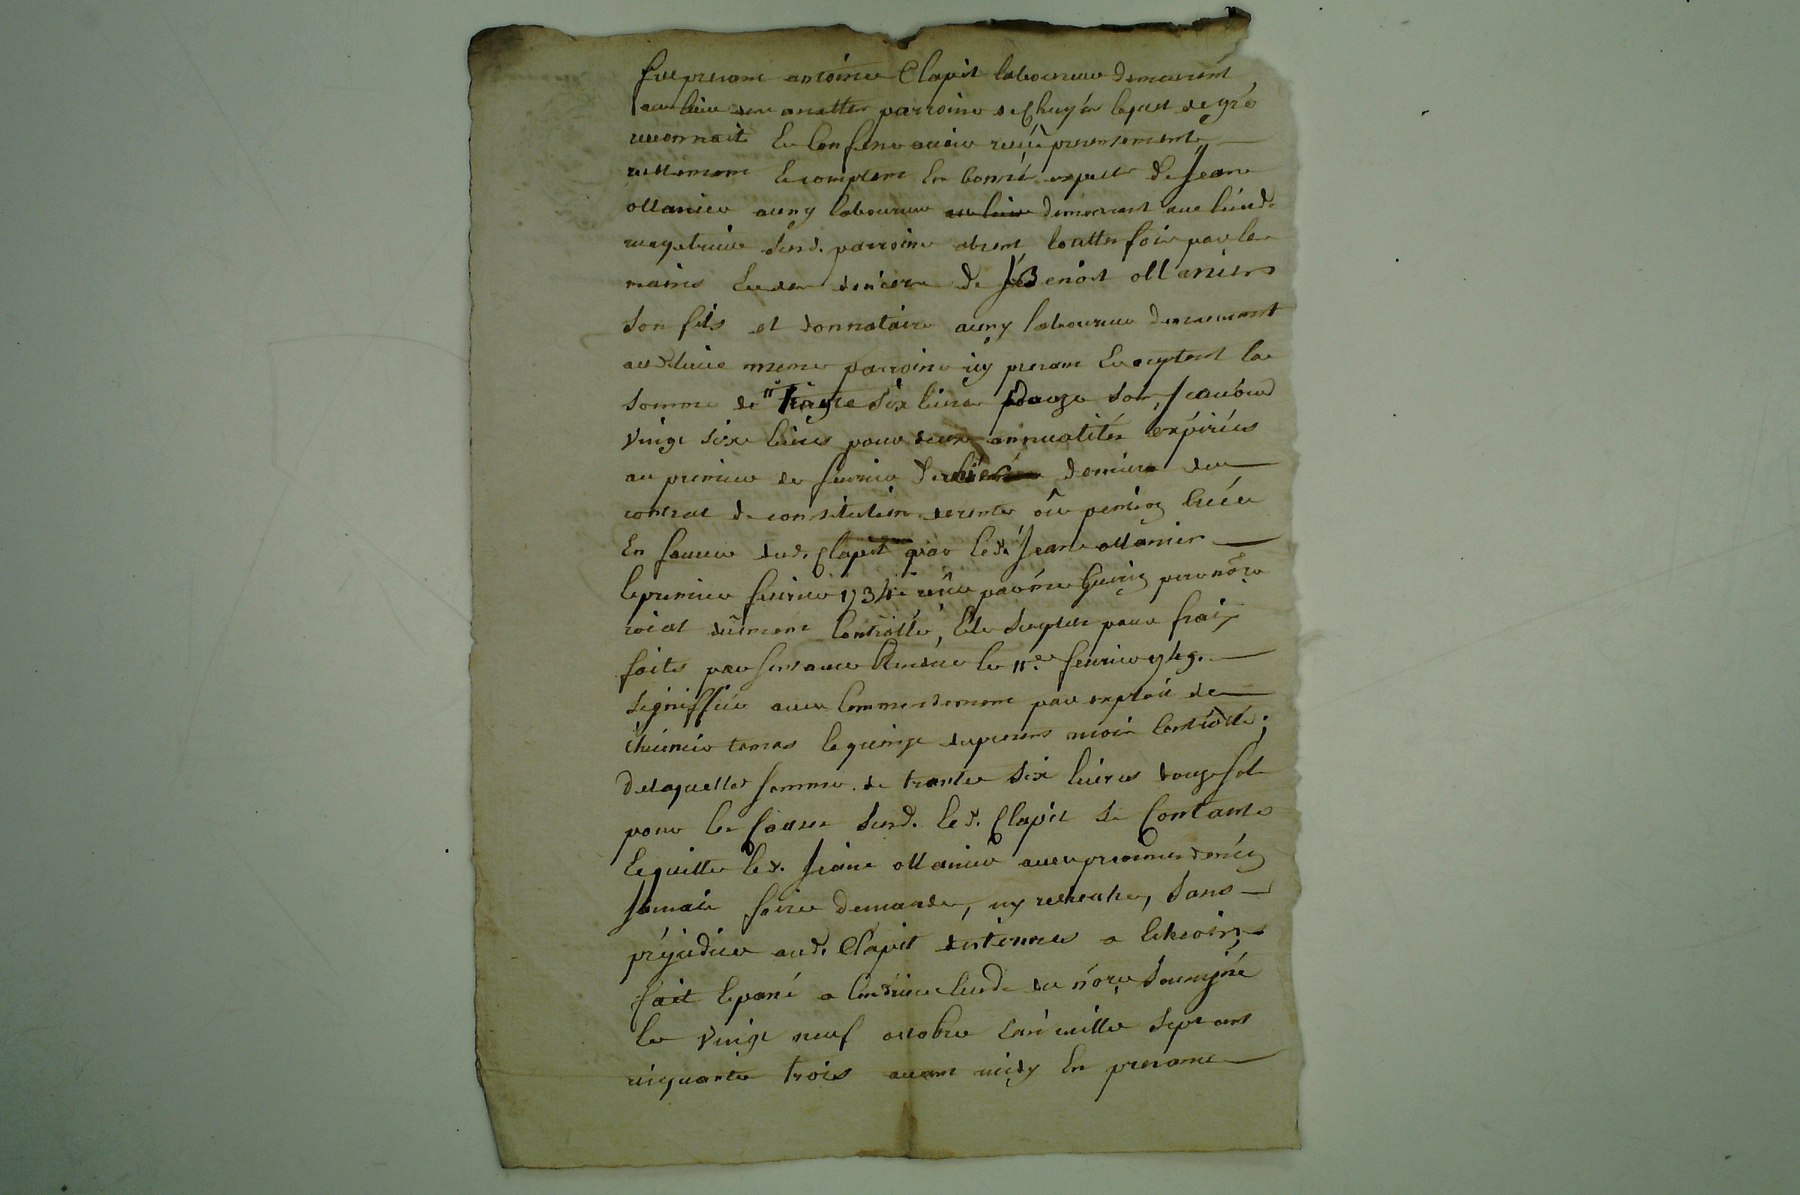 fut presant antoinne Clapit laboureur demeurant
au lieu de parroisse de lequel de gré
reconnait et confesse avoir receu presentement
reellement et comptant en bonnes especes de Jean
ollanier aussy laboureur au lieu demeurant au lieu de
susd. parroisse absent touttes fois par les
mains et des deniers de Benoit ollanier
son fils et donnataire aussy laboureur demeurant
aud. lieu meme parroisse icy presant et acceptant la
somme de trante six livres douze sols, scavoir
vingt six livres pour deux annualités expirées
au premier de fevrier dernier du
contrat de constitution de rente ou pension créée
en faveur dud. Clapit par led. Jean ollanier
le premier fevrier 1734 receu par me pere nore
roial duement controllé, et le surplus pour frais
faits par sentance rendue le 11e fevrier 1749
signiffiée avec commandement par exploit de
tomas le quinze du presens mois controllé;
de laquelle somme de trante six livres douze sols
pour les causes susd. led. Clapit se contante
et quitte led. Jean ollanier avec promesse de n'en
jamais faire demande, ny recherche, sans
prejudice aud. Clapit
fait et passé a de nore soussigné
le vingt neuf octobre mille sept cent
cinquante trois avant midy en presance